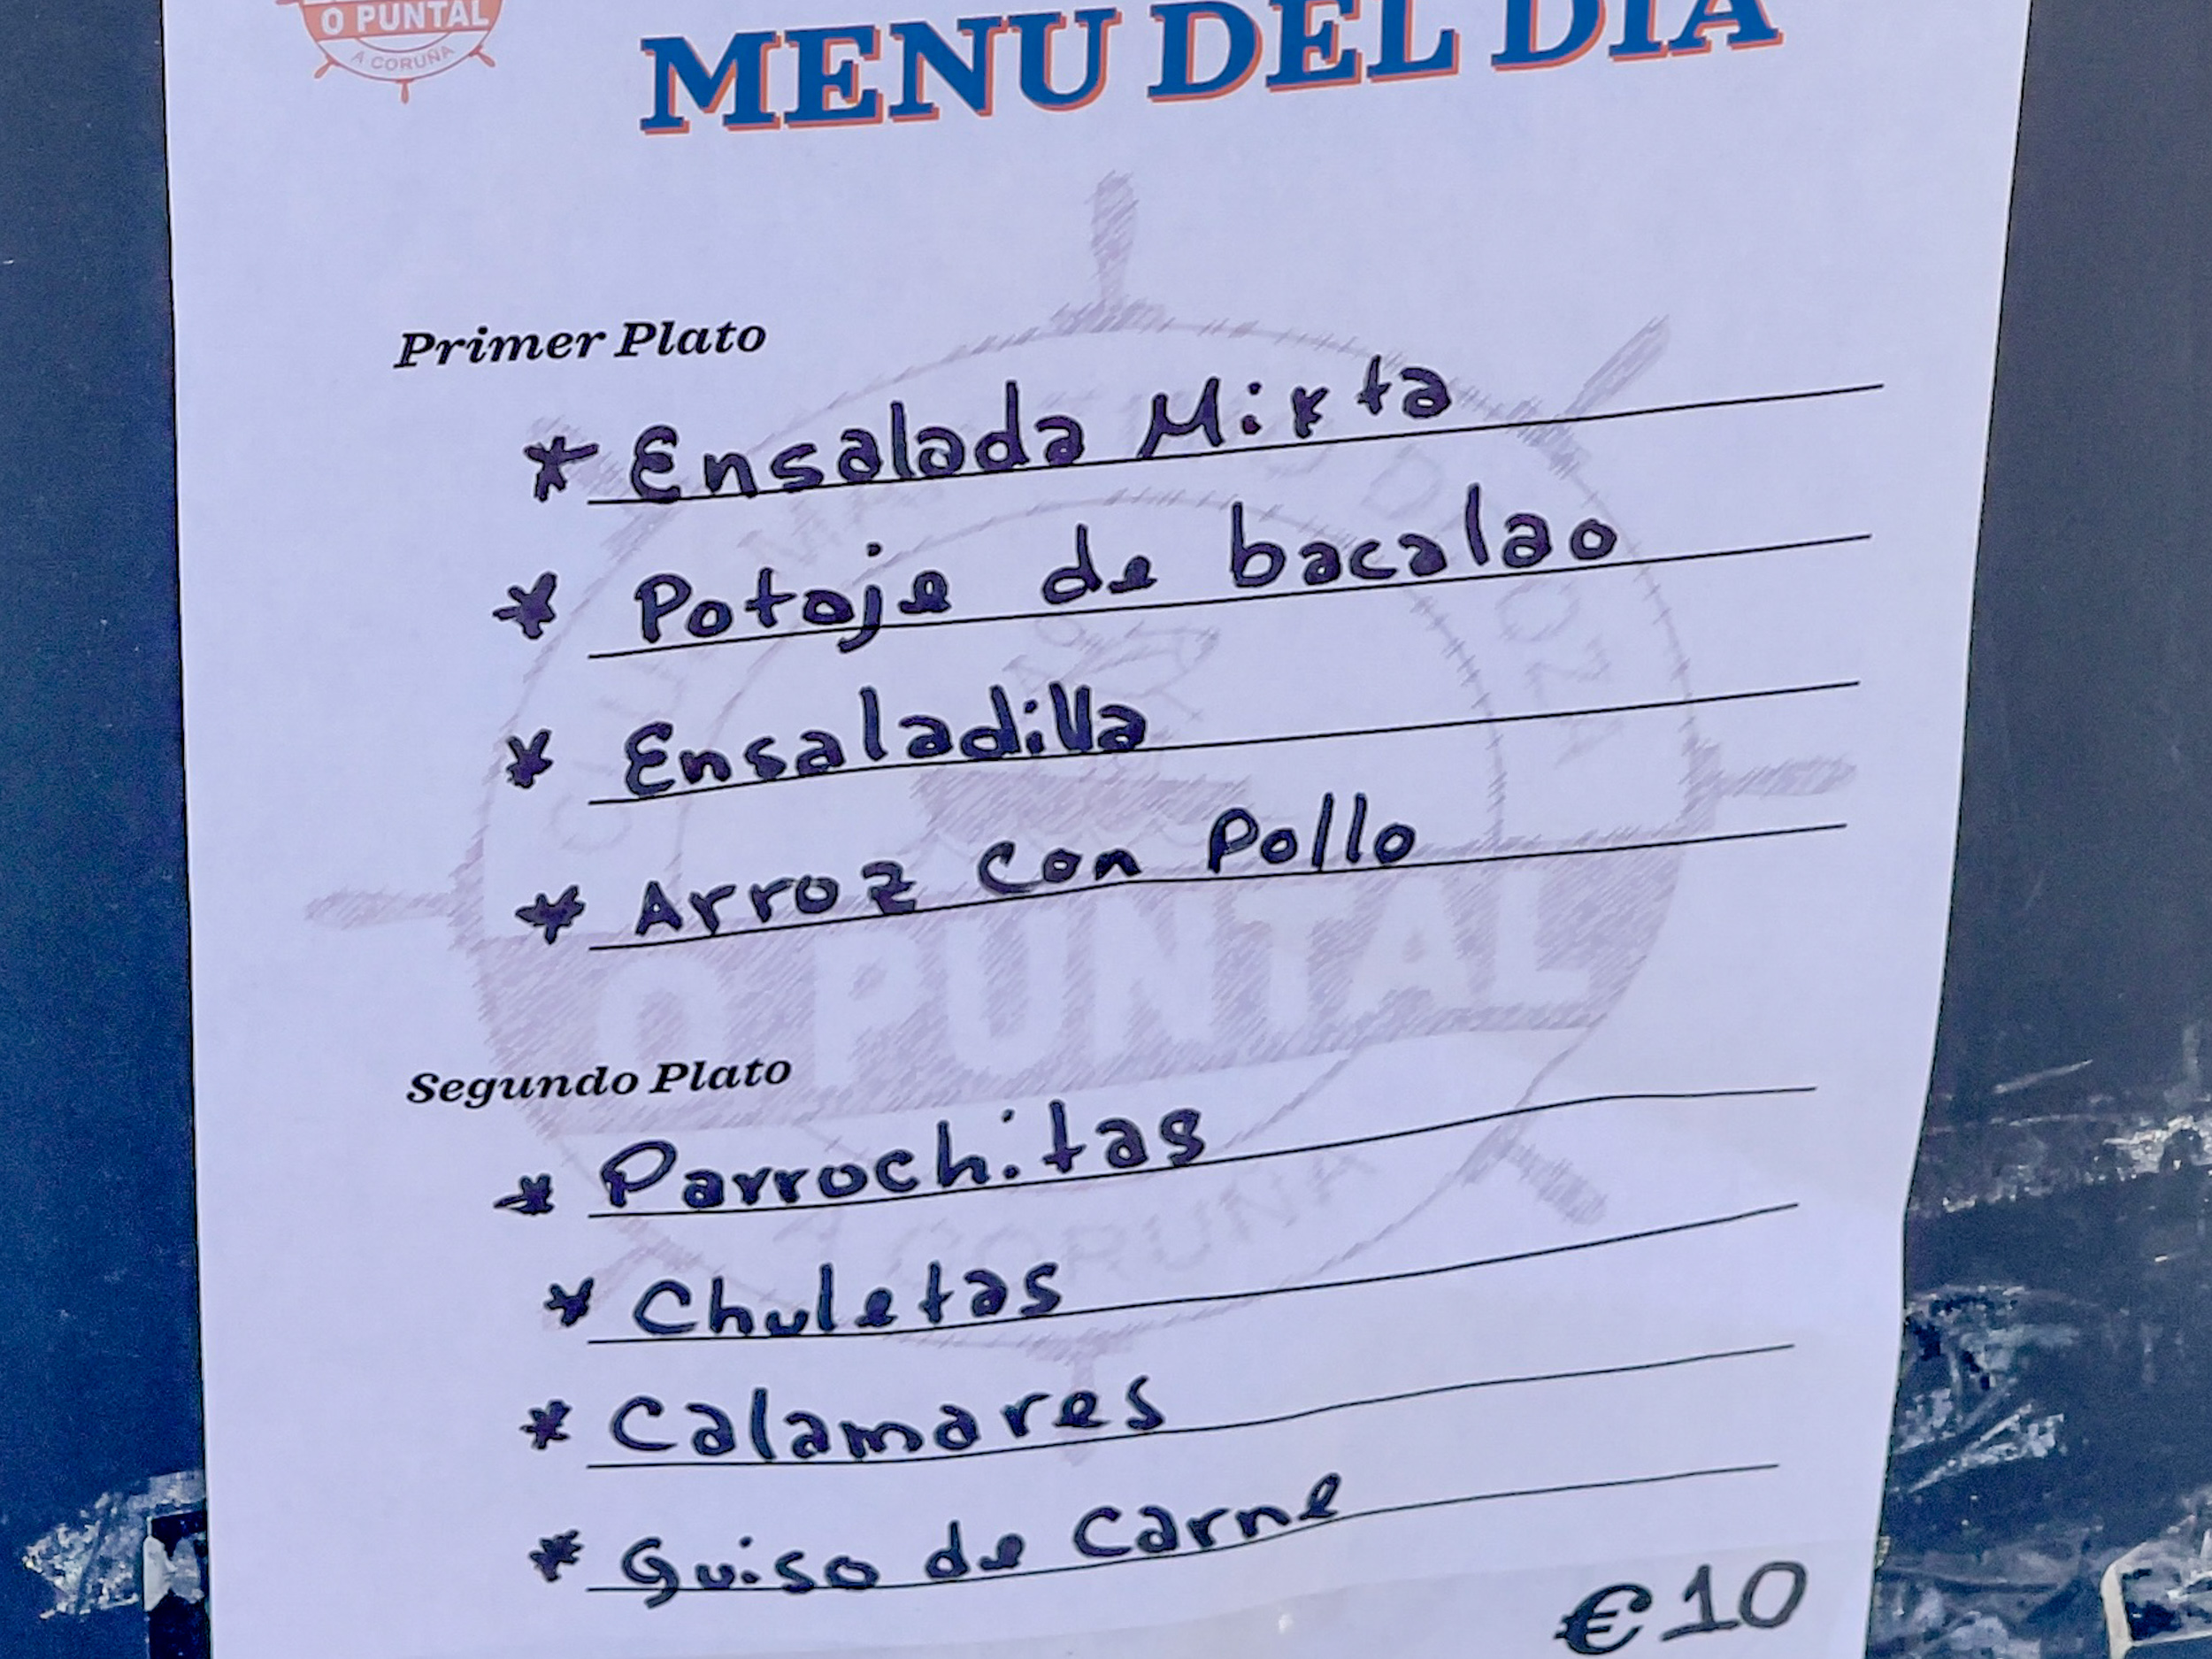 O PUNTAL
A CORUÑA
MENU DEL DIA
Primer Plato
* Ensalada Mixta
* Potaje de bacalao
* Ensaladilla
* Arroz con Pollo
O PUNTAL
A CORUÑA
Segundo Plato
* Parrochitas
* Chuletas
* Calamares
* Guiso de Carne
€10